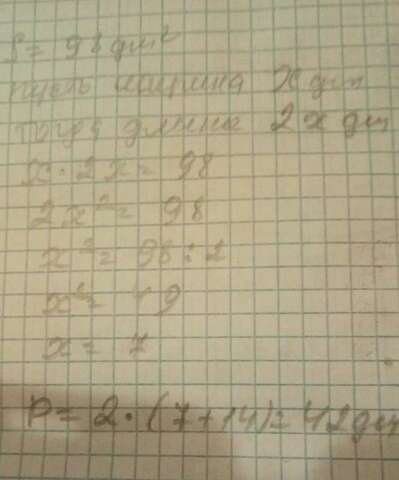 S = 98 дм²
пусть ширина x дм
тогда длина 2x дм
x · 2x = 98
2x² = 98
x² = 98 : 2
x² = 49
x = 7
P = 2 · (7 + 14) = 42 дм